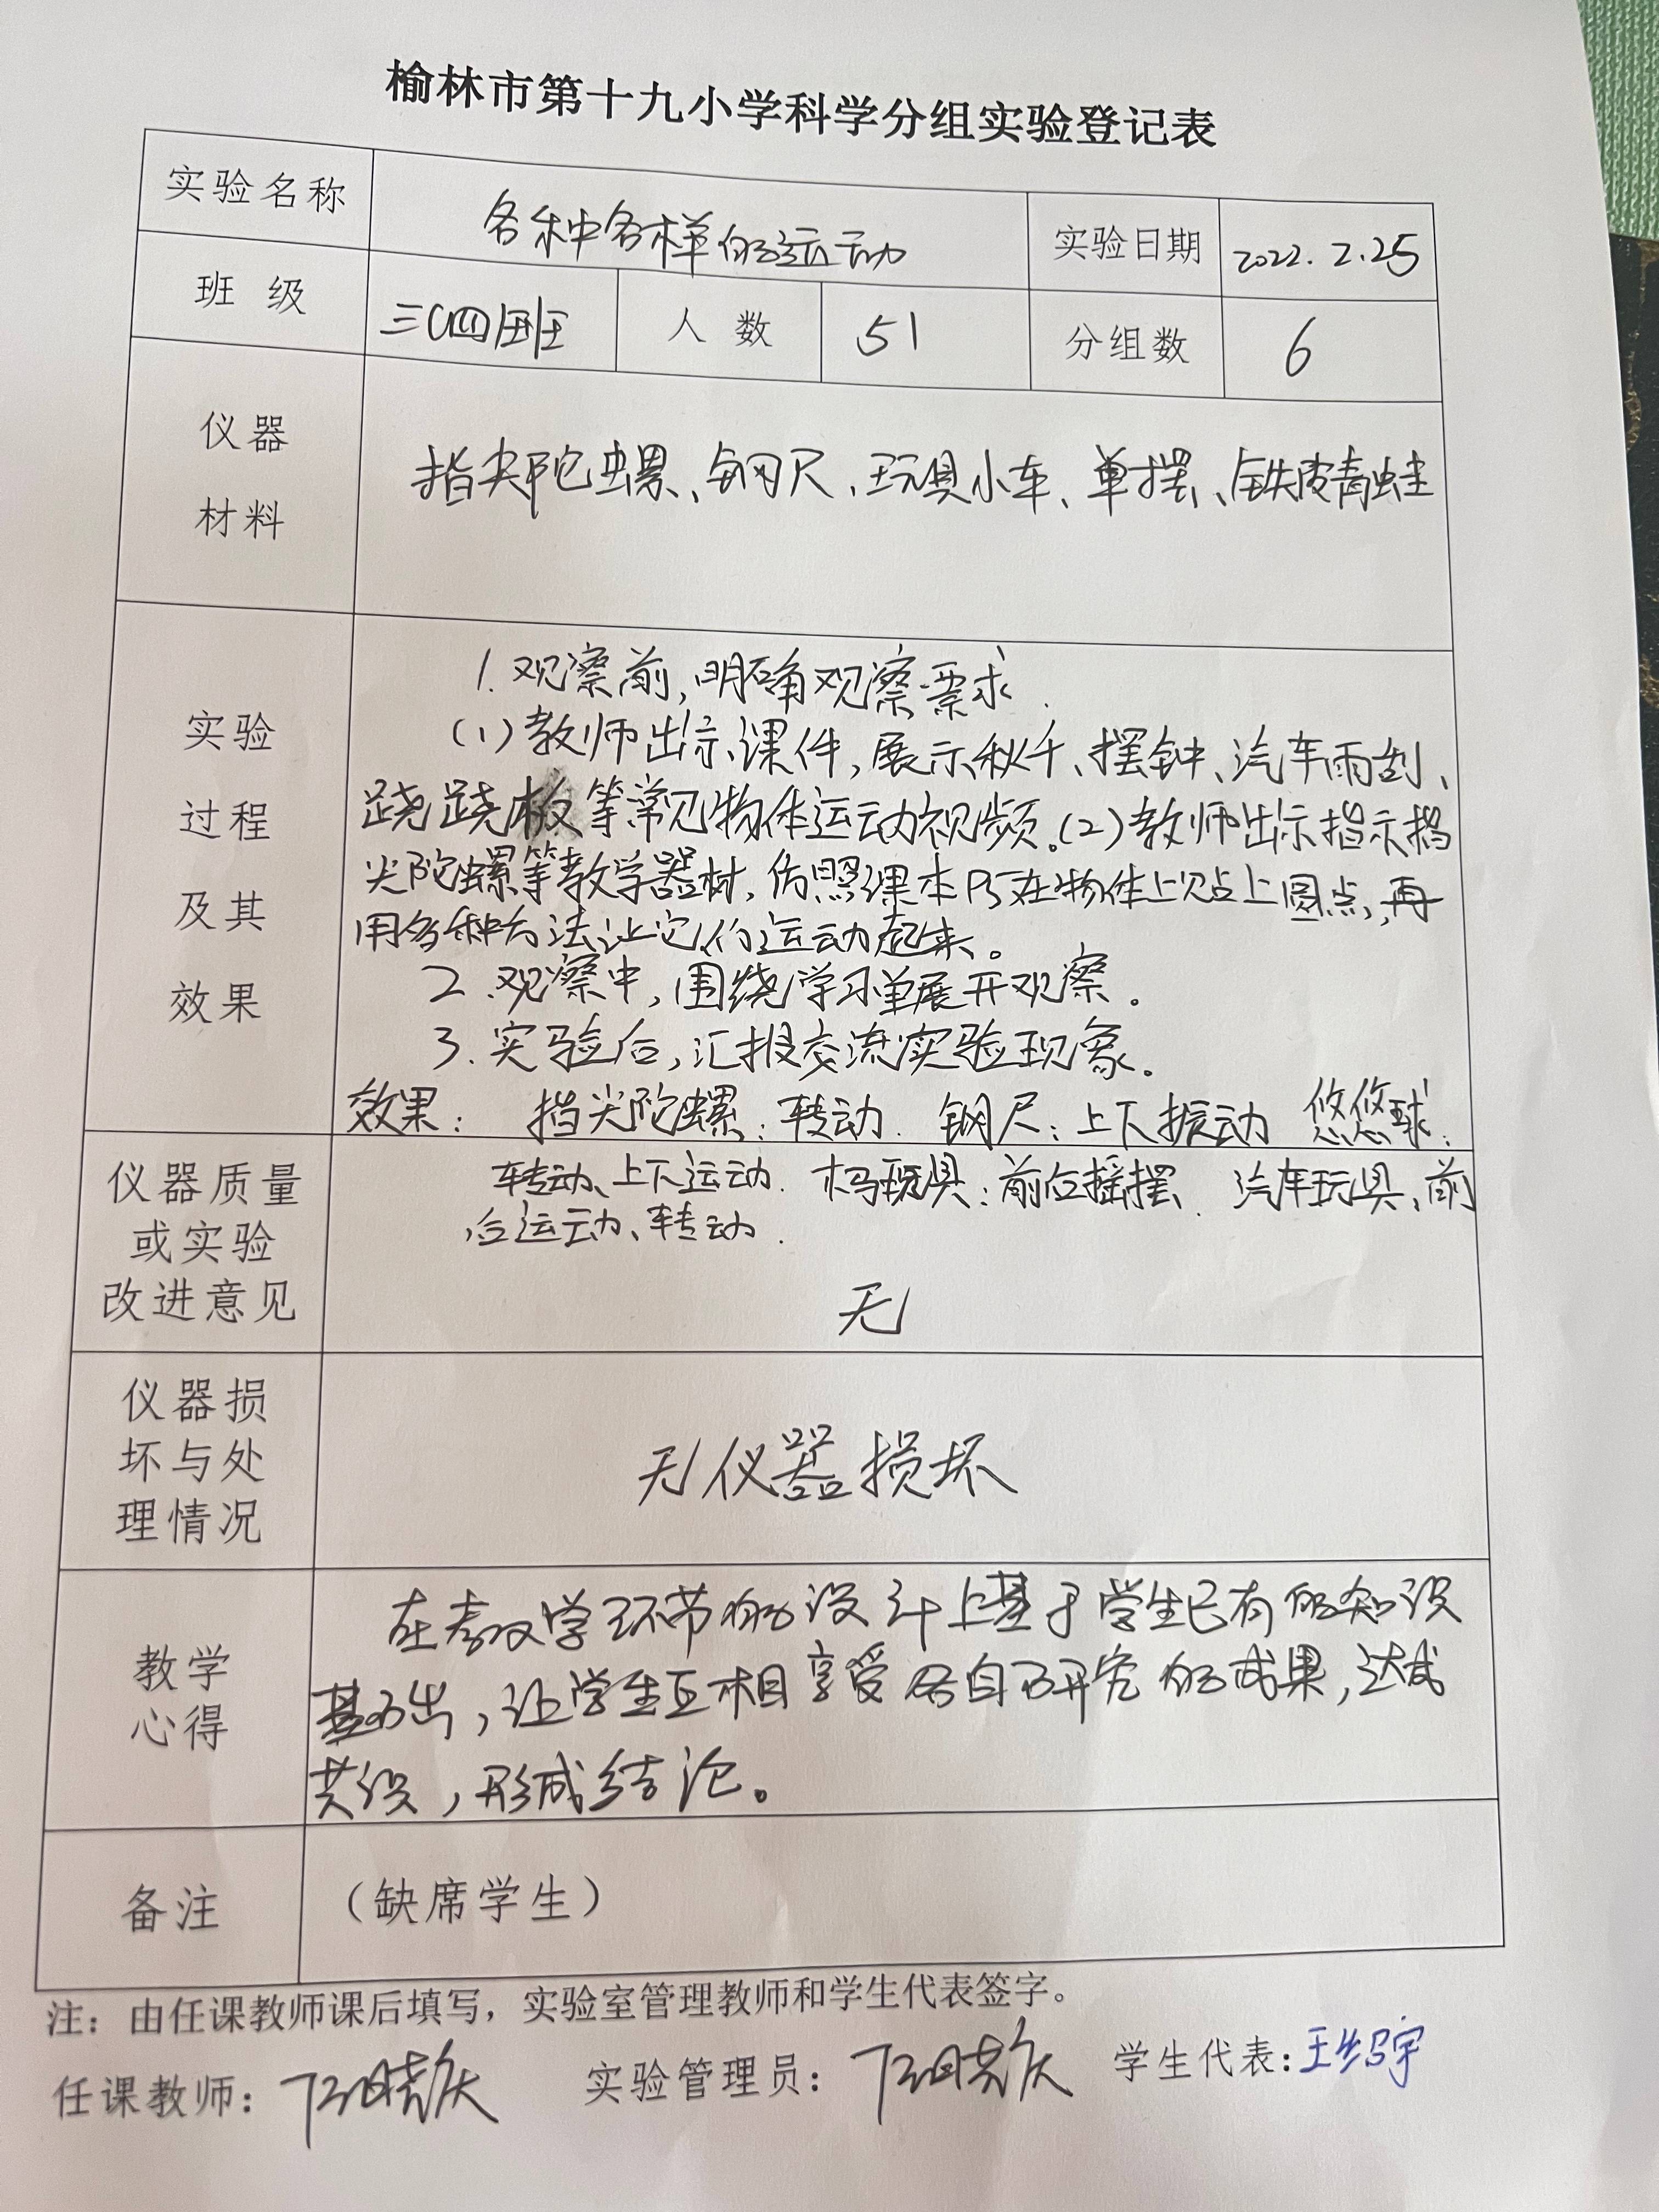 榆林市第十九小学科学分组实验登记表
实验名称 各种各样的运动 实验日期 2022.2.25
班级 三(四)班 人数 51 分组数 6
仪器
材料
指尖陀螺、钢尺、玩具小车、单摆、铁皮青蛙
实验
过程
及其
效果
1.观察前,明确观察要求.
(1)教师出示课件,展示秋千、摆钟、汽车雨刮、
跷跷板等常见物体运动视频.(2)教师出示指示指
尖陀螺等教学器材,仿照课本P5在物体上贴上圆点,再
用多种方法让它们运动起来。
2.观察中,围绕学习单展开观察.
3.实验后,汇报交流实验现象.
效果: 指尖陀螺:转动. 钢尺:上下振动 悠悠球:
转动、上下运动. 木马玩具:前后摇摆. 汽车玩具:前
后运动、转动.
仪器质量
或实验
改进意见
无
仪器损
坏与处
理情况
无仪器损坏
教学
心得
在教学环节的设计上基于学生已有的知识
基础出,让学生互相享受各自研究的成果,达成
共识,形成结论。
备注 (缺席学生)
注:由任课教师课后填写,实验室管理教师和学生代表签字。
任课教师: 实验管理员: 学生代表: